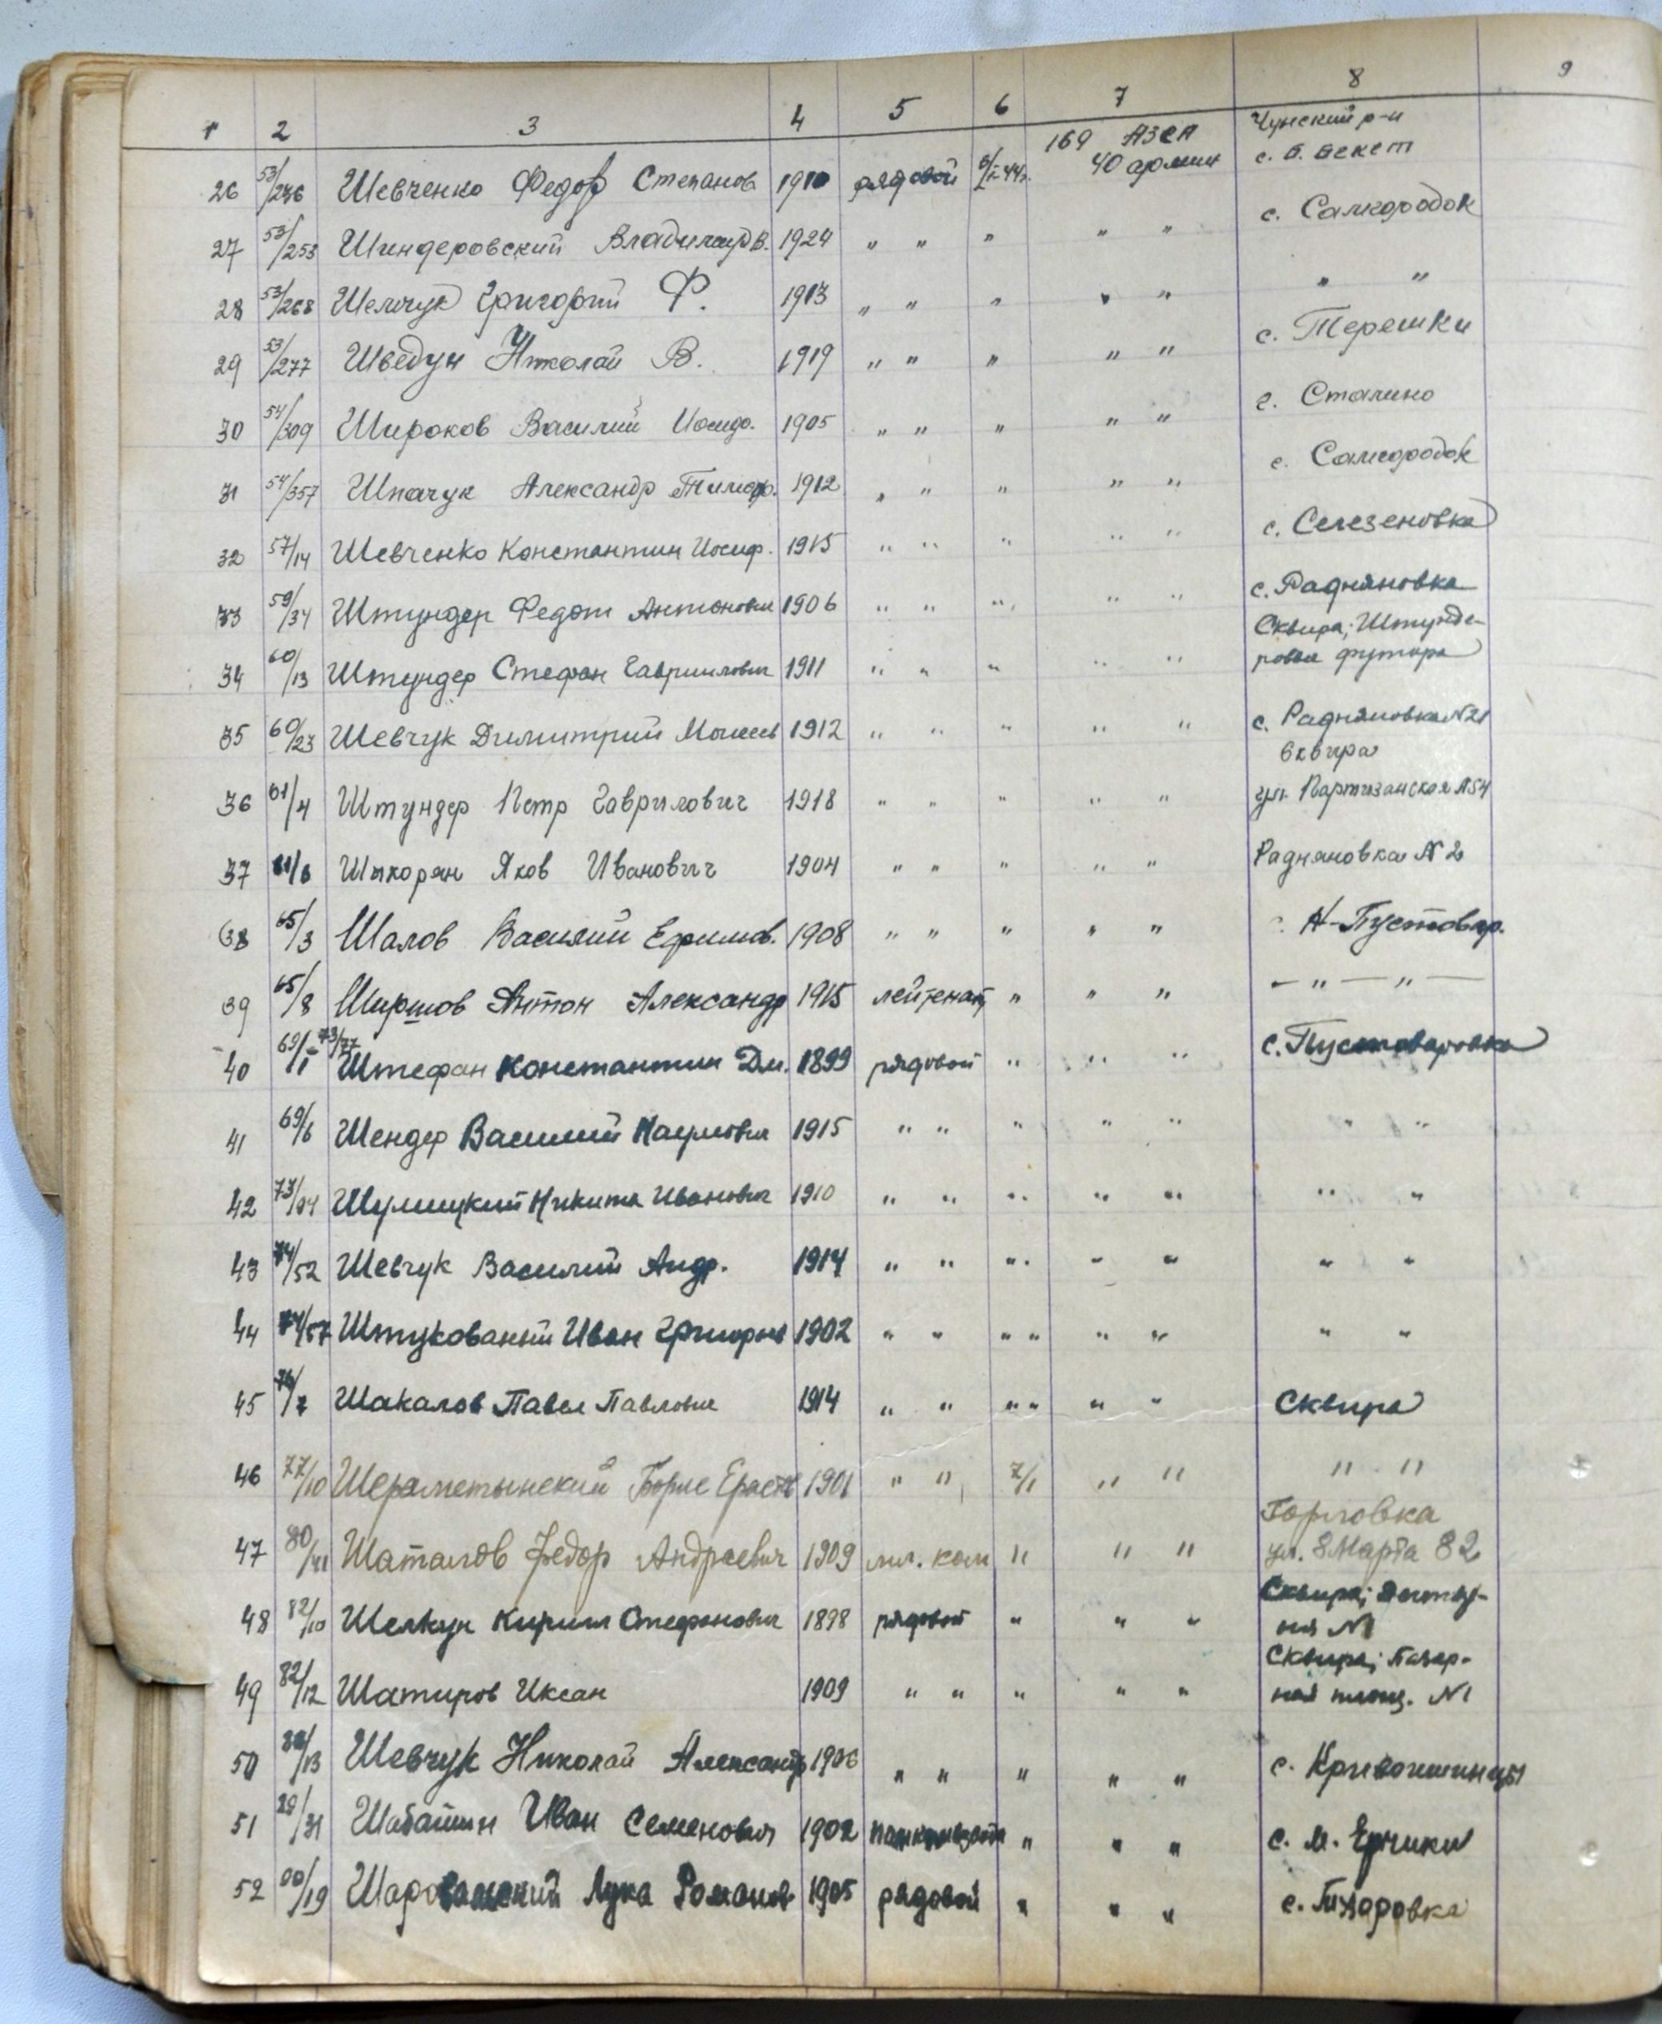 1 2 3 4 5 6 7 8 9
26 53/236 Шевченко Федор Степанов 1910 рядовой 6/I-44г. 169 АЗСП 40 армии с. Б.
27 53/253 Шиндеровский Владимир В. 1924 " " " " " с. Самгородок
28 53/268 Шемчук Григорий Ф. 1913 " " " " " " "
29 53/277 Шведун Николай В. 1919 " " " " " с. Терешки
30 54/309 Широков Василий 1905 " " " " " г. Сталино
31 54/357 Шпачук Александр Тимоф. 1912 " " " " " с. Самгородок
32 57/14 Шевченко Константин Иосиф. 1915 " " " " " с. Селезеновка
33 59/34 Штундер Федот Антонович 1906 " " " " " с. Радняновка
34 60/13 Штундер Стефан Гавриилович 1911 " " " " " Сквира; Штунде-
ровы хутора
35 60/23 Шевчук Димитрий Моисеев 1912 " " " " " с. Радняновка N21
Сквира
36 61/4 Штундер Петр Гаврилович 1918 " " " " " ул. Партизанская N54
37 61/6 Шикорян Яков Иванович 1904 " " " " " Радняновка N 2
38 65/3 Шалов Василий Ефимов. 1908 " " " " " с. Н-Пустовар.
39 65/8 Ширшов Антон Александр 1915 лейтенант " " " — " — " —
40 69/1 73/77 Штефан Константин Дм. 1899 рядовой " " " с. Пустоваровка
41 69/6 Шендер Василий Наумович 1915 " " " " " " "
42 73/94 Шумицкий Никита Иванович 1910 " " " " " " "
43 74/52 Шевчук Василий Андр. 1914 " " " " " " "
44 74/57 Штукованый Иван Григорьев 1902 " " " " " " " "
45 76/7 Шакалов Павел Павлович 1914 " " " " " " Сквира
46 77/10 Шереметынский Борис Ерастов 1901 " " 7/1 " " " "
47 80/41 Шаталов Федор Андреевич 1909 мл. ком " " " Горловка
ул. 8 Марта 82
48 82/10 Шелкун Кирилл Стефанович 1898 рядовой " " " Сквира;
N1
49 82/12 Шатиров Иксан 1909 " " " " " Сквира; Базар-
ная площ. N1
50 88/13 Шевчук Николай Александр 1906 " " " " " с. Кривошиинцы
51 29/31 Шабашин Иван Семенович 1902 " " " с. М. Ерчики
52 90/19 Шаровальский Лука Романов 1905 рядовой " " " с.